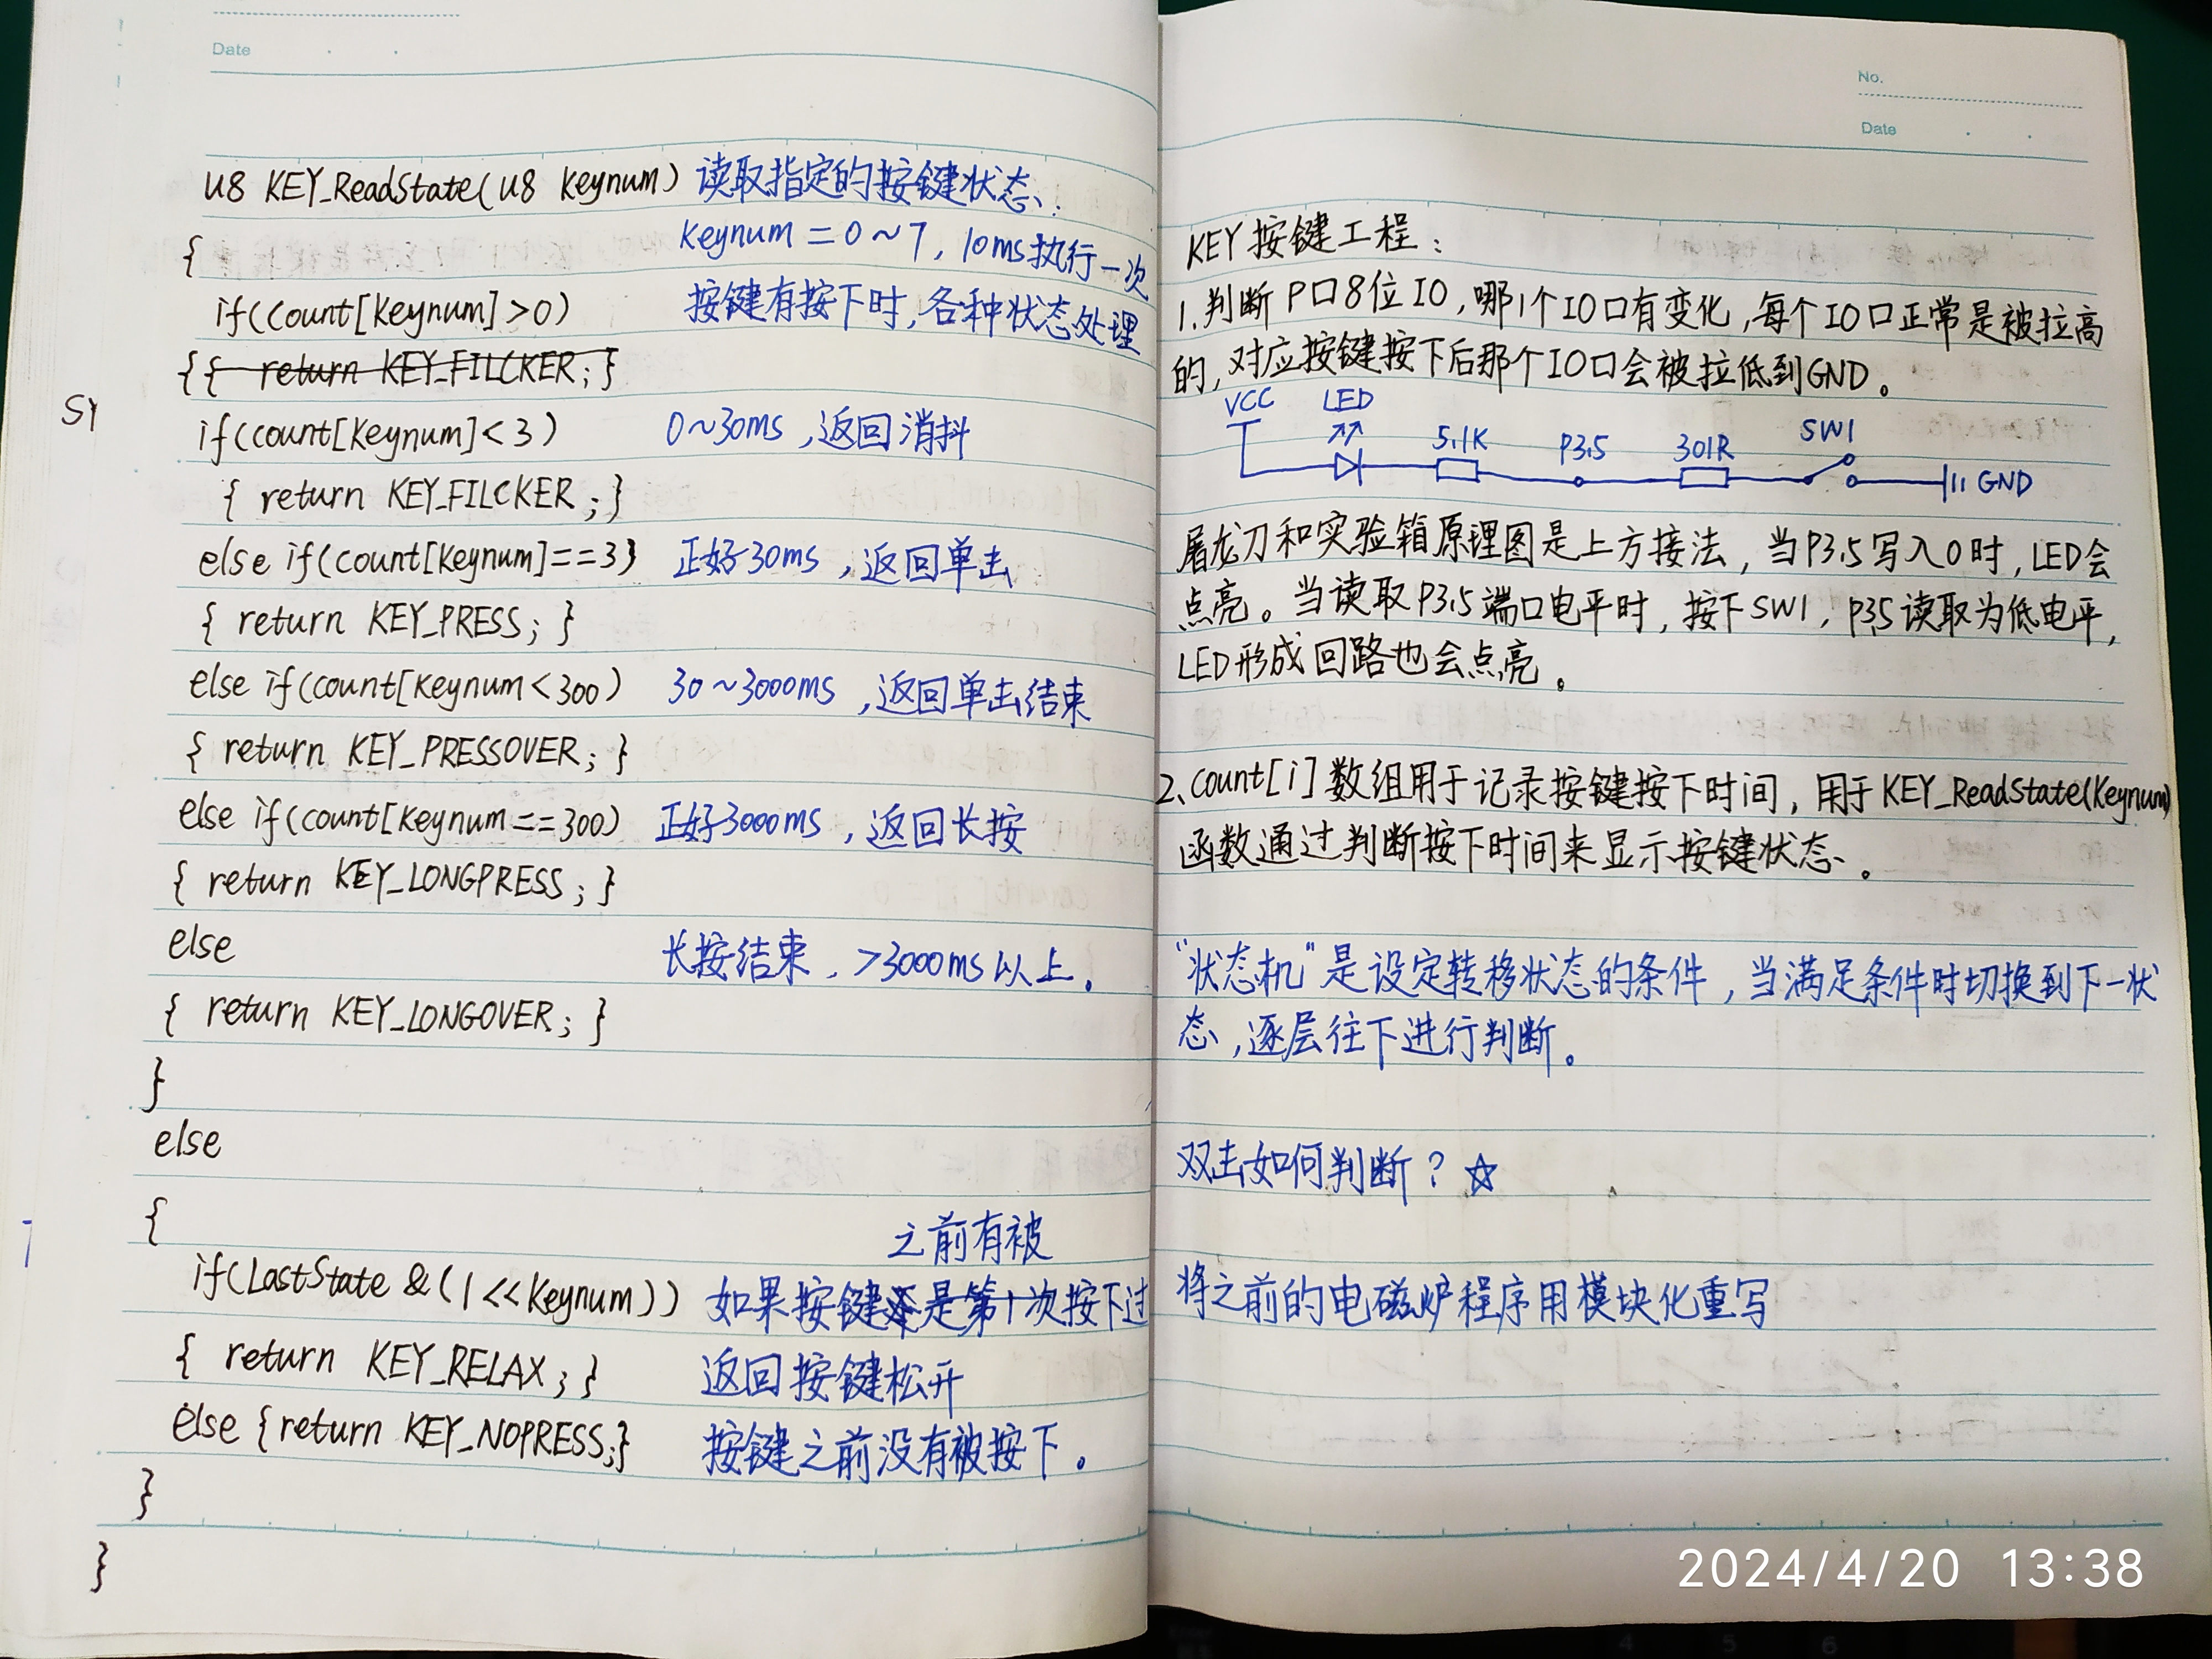 Date
u8 KEY_ReadState(u8 Keynum) 读取指定的按键状态.
{ Keynum = 0~7, 10ms执行一次
if(count[Keynum]>0) 按键有按下时,各种状态处理
{{ return KEY_FILCKER; }
SY
if(count[Keynum]<3) 0~30ms,返回消抖
{ return KEY_FILCKER; }
else if(count[Keynum]==3) 正好30ms,返回单击
{ return KEY_PRESS; }
else if(count[Keynum<300) 30~3000ms,返回单击结束
{ return KEY_PRESSOVER; }
else if(count[Keynum==300) 正好3000ms,返回长按
{ return KEY_LONGPRESS; }
else 长按结束,>3000ms以上.
{ return KEY_LONGOVER; }
}
else
{
之前有被
if(LastState &(1<<Keynum)) 如果按键是第1次按下过
{ return KEY_RELAX; } 返回按键松开
else {return KEY_NOPRESS;} 按键之前没有被按下。
}
}
No.
Date
KEY 按键工程:
1.判断P口8位IO,哪1个IO口有变化,每个IO口正常是被拉高
的,对应按键按下后那个IO口会被拉低到GND。
VCC LED 5.1K P3.5 301R SW1 GND
屠龙刀和实验箱原理图是上方接法,当P3.5写入0时,LED会
点亮。当读取P3.5端口电平时,按下SW1,P3.5读取为低电平,
LED形成回路也会点亮。
2、count[i]数组用于记录按键按下时间,用于KEY_ReadState(Keynum)
函数通过判断按下时间来显示按键状态。
“状态机”是设定转移状态的条件,当满足条件时切换到下一状
态,逐层往下进行判断。
双击如何判断?☆
将之前的电磁炉程序用模块化重写
2024/4/20 13:38